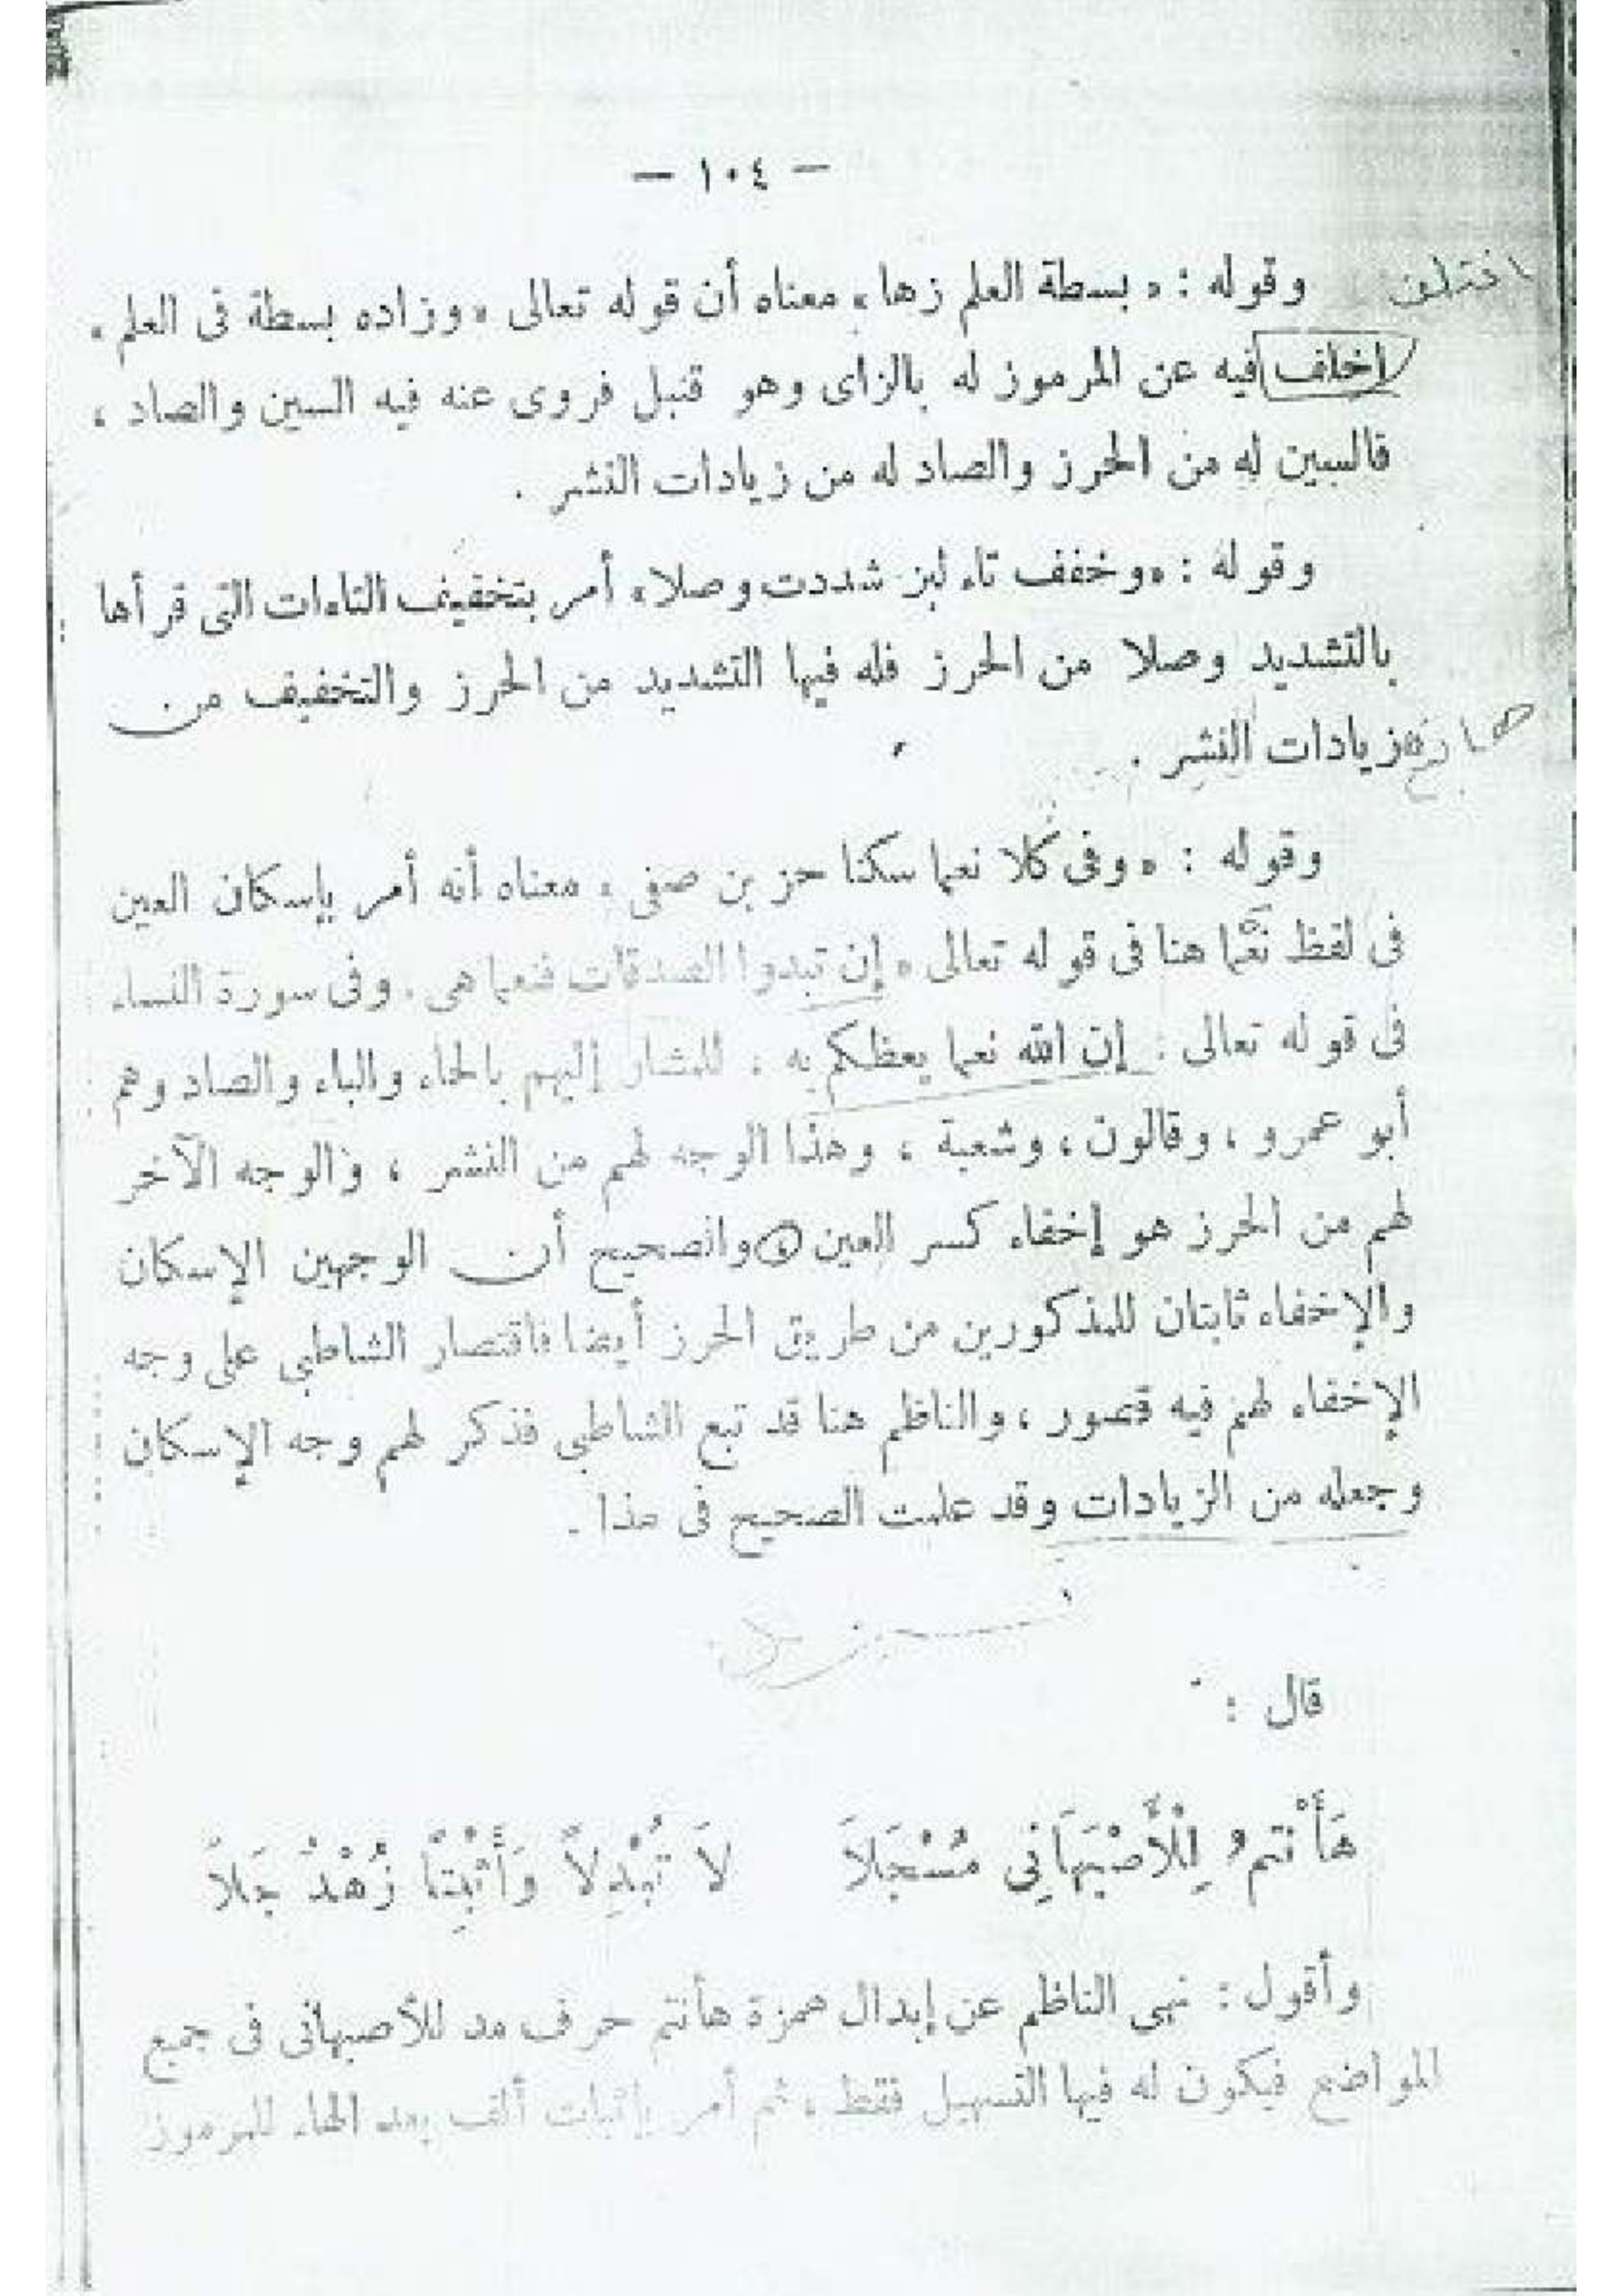 — ١٠٤ —
اختلف
وقوله : « بسطة العلم زها » معناه أن قوله تعالى « وزاده بسطة فى العلم »
اخلف فيه عن المرموز له بالزاى وهو قنبل فروى عنه فيه السين والصاد ،
فالسين له من الحرز والصاد له من زيادات النشر .
وقوله : « وخفف تاء لبز شددت وصلا » أمر بتخفيف التاءات التى قرأها
بالتشديد وصلا من الحرز فله فيها التشديد من الحرز والتخفيف من
زيادات النشر .
وقوله : « وفى كلا نعما سكنا حز بن صفى » معناه أنه أمر بإسكان العين
فى لفظ نعما هنا فى قوله تعالى « إن تبدوا الصدقات فنعما هى . وفى سورة النساء
فى قوله تعالى : إن الله نعما يعظكم به ، للمشار إليهم بالحاء والباء والصاد وهم
أبو عمرو ، وقالون ، وشعبة ، وهذا الوجه لهم من النشر ، والوجه الآخر
لهم من الحرز هو إخفاء كسر العين والصحيح أن الوجهين الإسكان
والإخفاء ثابتان للمذكورين من طريق الحرز أيضا فاقتصار الشاطبى على وجه
الإخفاء لهم فيه قصور ، والناظم هنا قد تبع الشاطبى فذكر لهم وجه الإسكان
وجعله من الزيادات وقد علمت الصحيح فى هذا .
قال :
هَأَنْتمُ لِلْأَصْبَهَانِى مُسْجَلَا لَا تُبْدِلَاً وَأَثْبِتَاً زُهْدُ جَلَاً
وأقول : نهى الناظم عن إبدال همزة هأنتم حرف مد للأصبهانى فى جميع
المواضع فيكون له فيها التسهيل فقط ، ثم أمر بإثبات ألف بعد الهاء للمرموز